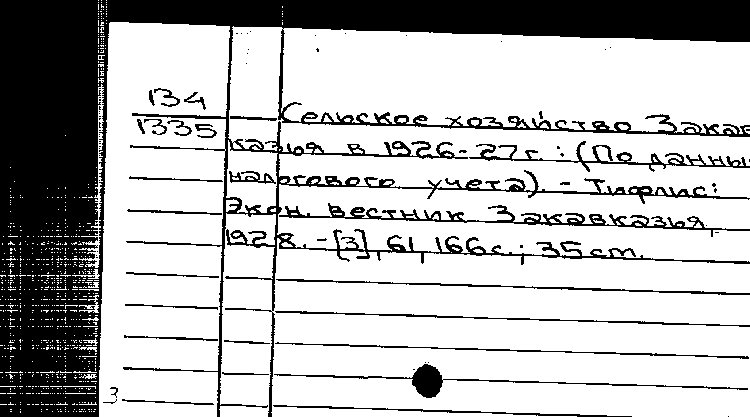 134
1335
Сельское хозяйство Закав
казья в 1926-27г. : (По данны
налогового учета). - Тифлис:
Экон. вестник Закавказья,
1928. - [3], 61, 166с.; 35cm.
3